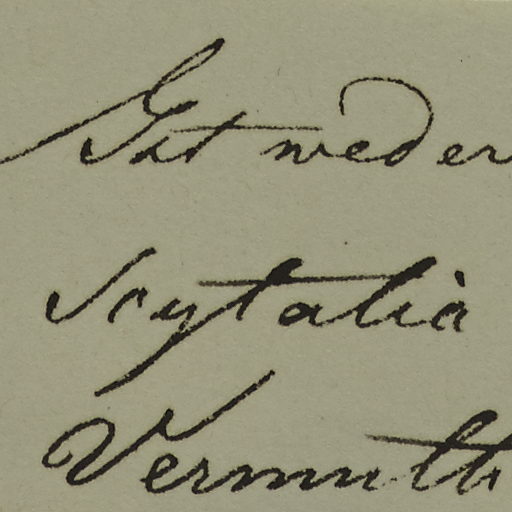 Ist weder
Scytalia
Vermuth